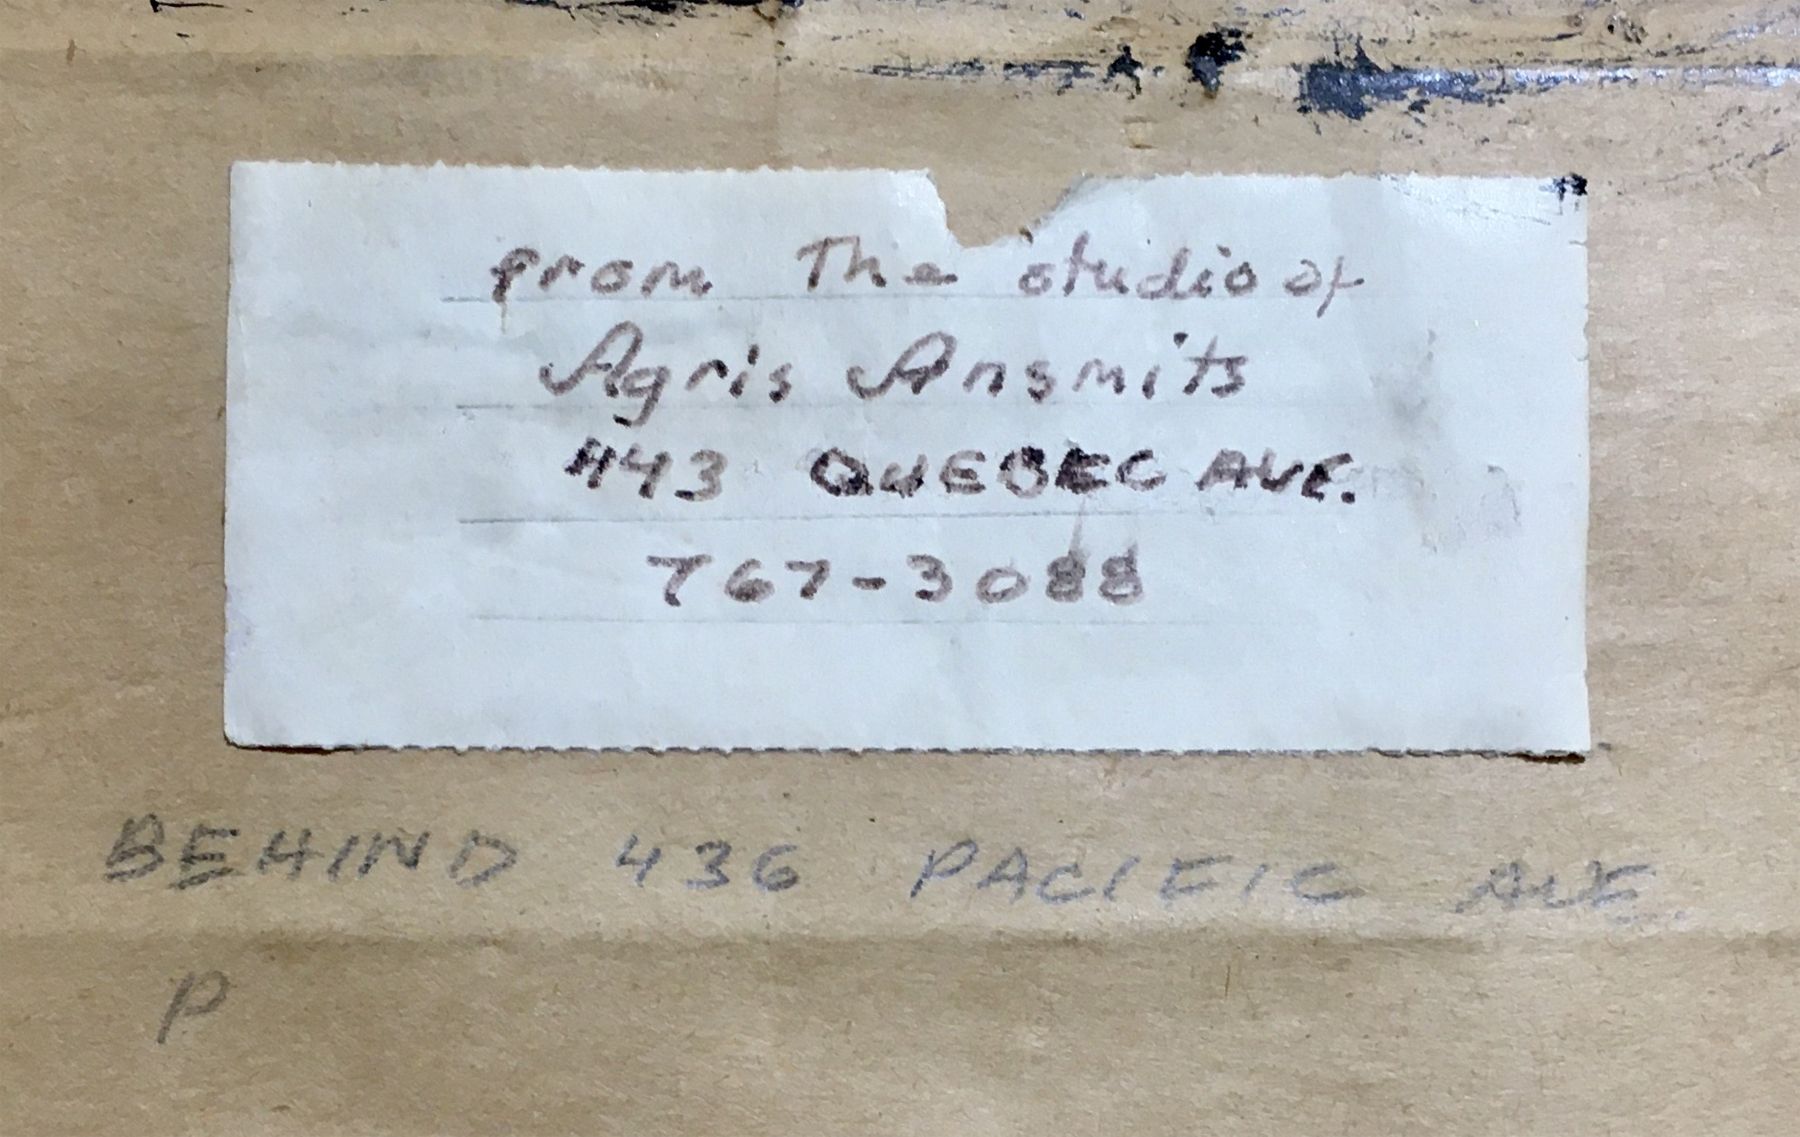 from The studio of
Agris Ansmits
443 QUEBEC AVE.
767-3088
BEHIND 436 PACIFIC AVE.
P